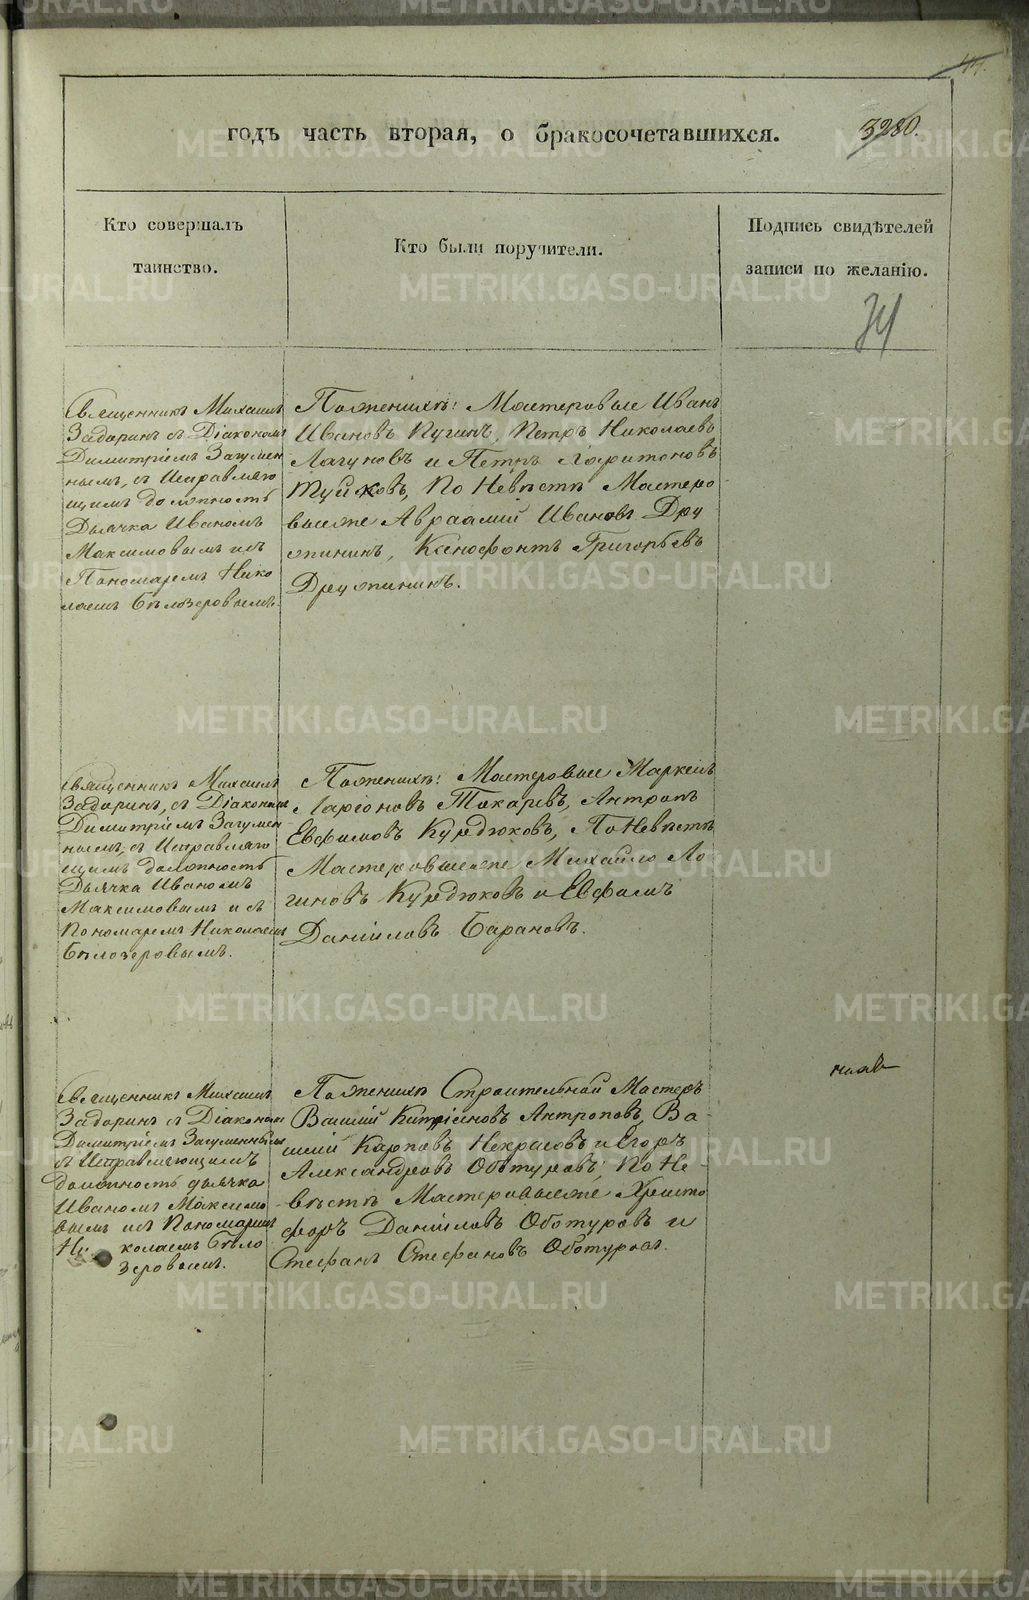 годъ часть вторая, о бракосочетавшихся.
3280.
Кто совершалъ
таинство.
Кто были поручители.
Подпись свидѣтелей
записи по желанію.
Священникъ Михаилъ
Задоринъ съ Діакономъ
Димитріемъ Загумен
нымъ, съ Исправляю
щимъ должность
Дьячка Иваномъ
Максимовымъ и съ
Пономаремъ Нико
лаемъ Бѣлозеровымъ.
По женихѣ: Мастеровые Иванъ
Ивановъ Пугинъ, Петръ Николаевъ
Лагуновъ и Петръ Харитоновъ
Туйковъ, По Невѣстѣ Мастеро
выеже Авраамій Ивановъ Дру
жининъ, Ксенофонтъ Григорьевъ
Дружининъ.
Священникъ Михаилъ
Задоринъ, съ Діакономъ
Димитріемъ Загумен
нымъ, съ Исправляю
щимъ должность
Дьячка Иваномъ
Максимовымъ и съ
Пономаремъ Николаемъ
Бѣлозеровымъ.
По женихѣ: Мастеровые Маркелъ
Ларіоновъ Токаревъ, Антропъ
Евфимовъ Курдюковъ, По Невѣстѣ
Мастеровыеже Михайло Ло
гиновъ Курдюковъ и Евфимъ
Даніиловъ Барановъ.
Священникъ Михаилъ
Задоринъ съ Діакономъ
Димитріемъ Загуменнымъ
съ Исправляющимъ
должность дьячка
Иваномъ Максимо
вымъ и съ Пономаремъ
Ни колаемъ Бѣло
зеровымъ.
По женихѣ Строительный Мастеръ
Василій Антроповъ, Ва-
силій Карповъ Некрасовъ и Егоръ
Александровъ Оботуровъ; По Не-
вѣстѣ Мастеровыеже Христо
форъ Даніиловъ Оботуровъ и
Стефанъ Стефановъ Оботуровъ.
METRIKI.GASO-URAL.RU